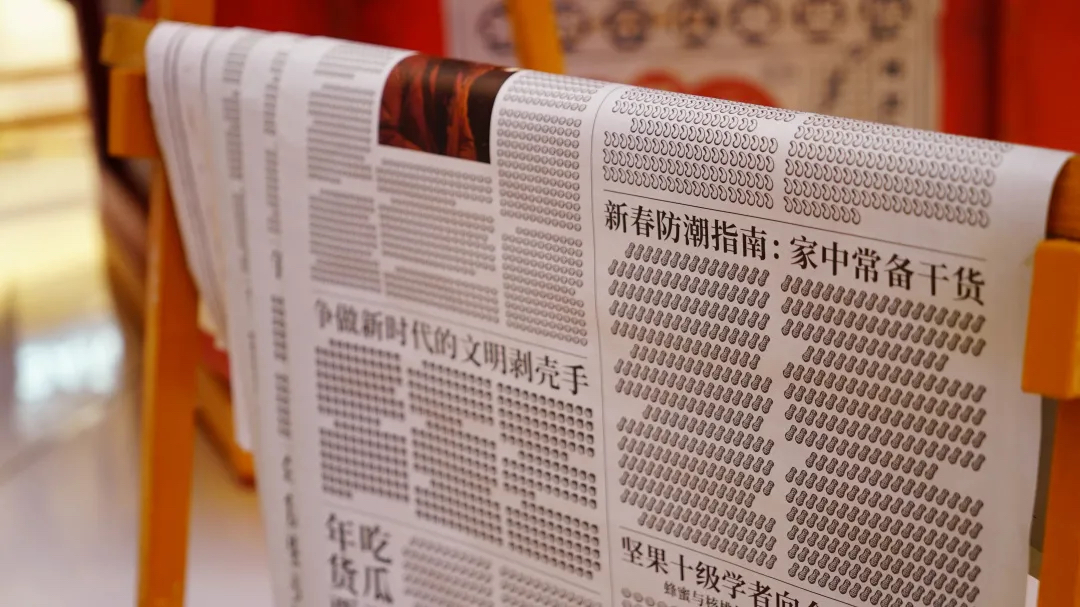 新春防潮指南：家中常备干货
争做新时代的文明剥壳手
吃瓜
年货
坚果十级学者向
蜂蜜与核桃